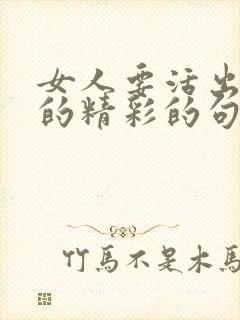 女人要活出
的精彩的句
竹馬不是木馬